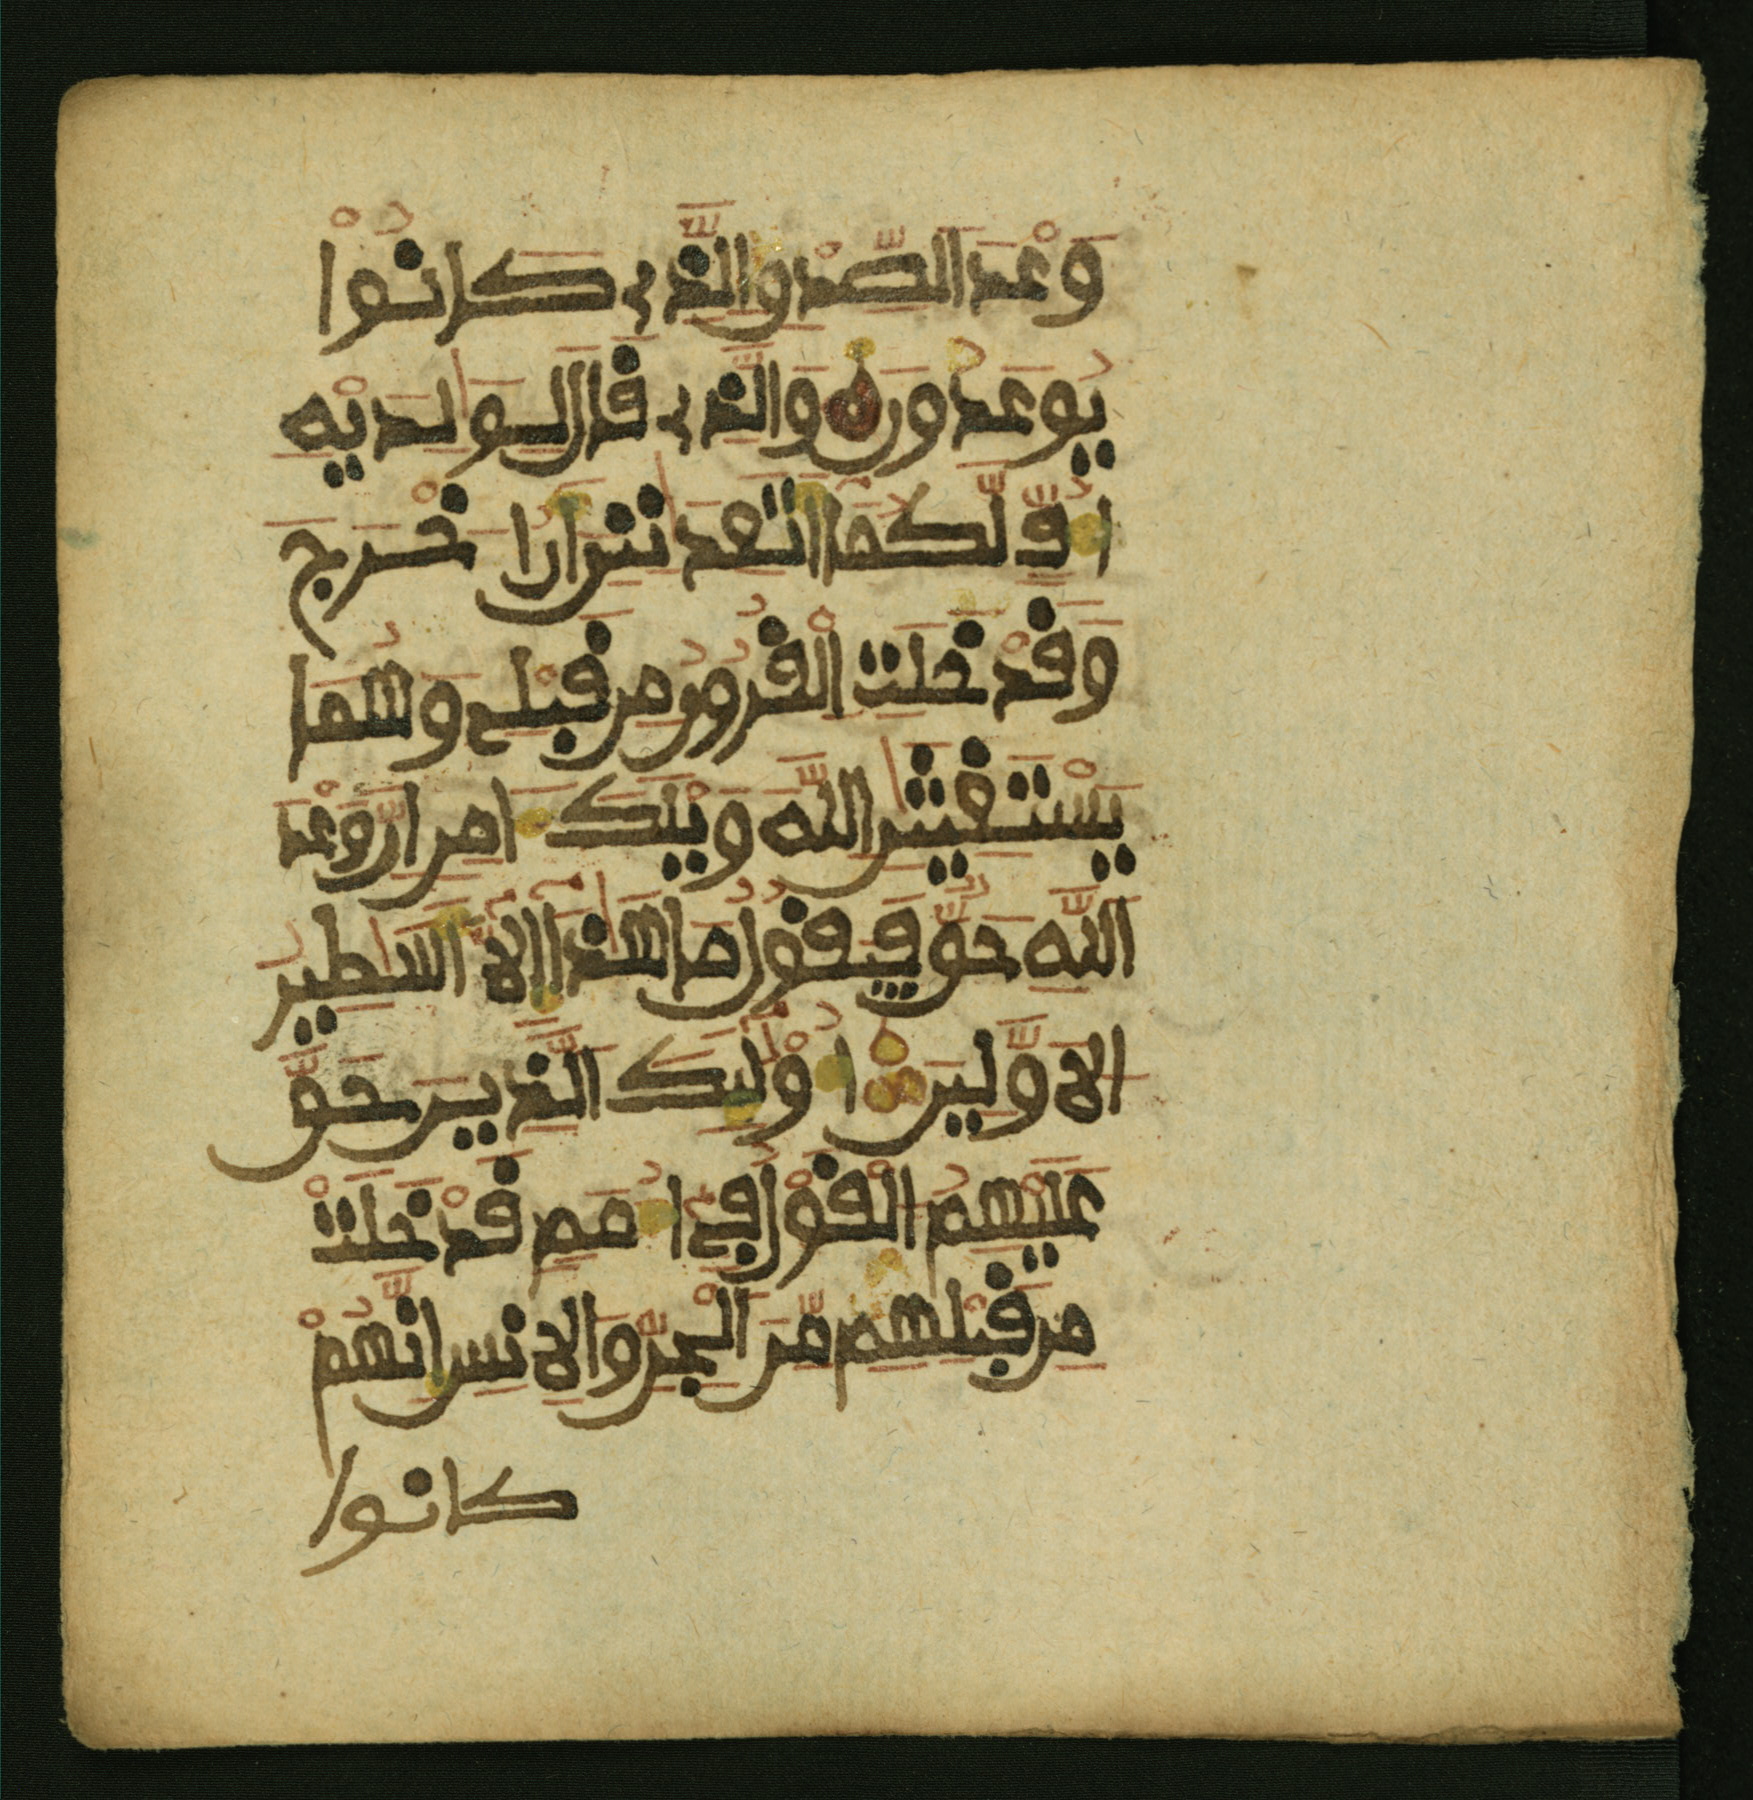 وَعْدَ الصِّدْوِ الَّذِے كَانُواْ
يُوعَدُونَ وَالَّذِے قَالَ لِوَلِدَيْهِ
أُفٍّ لَّكُمَا أَتَعِدَانِنِىَ أَنُ اخْرَجَ
وَقَدْ خَلَتِ الْقُرُونُ مِن قَبْلِے وَهُمَا
يَسْتَغِيثَانِ اللَّهَ وَيْلَكَ ءَامِنِ انَّ وَعْدَ
اللَّهِ حَقٌّ فَيَقُولُ مَا هَٰذَا إِلَّا أَسَٰطِيرُ
الَاوَّلِينَ أُوْلَٰٓئِكَ الَّذِينَ حَقَّ
عَلَيْهِمُ الْقَوْلُ فِے أُمَمٍ قَدْ خَلَتْ
مِن قَبْلِهِم مِّنَ الْجِنِّ وَالِانسِ إِنَّهُمْ
كانوا